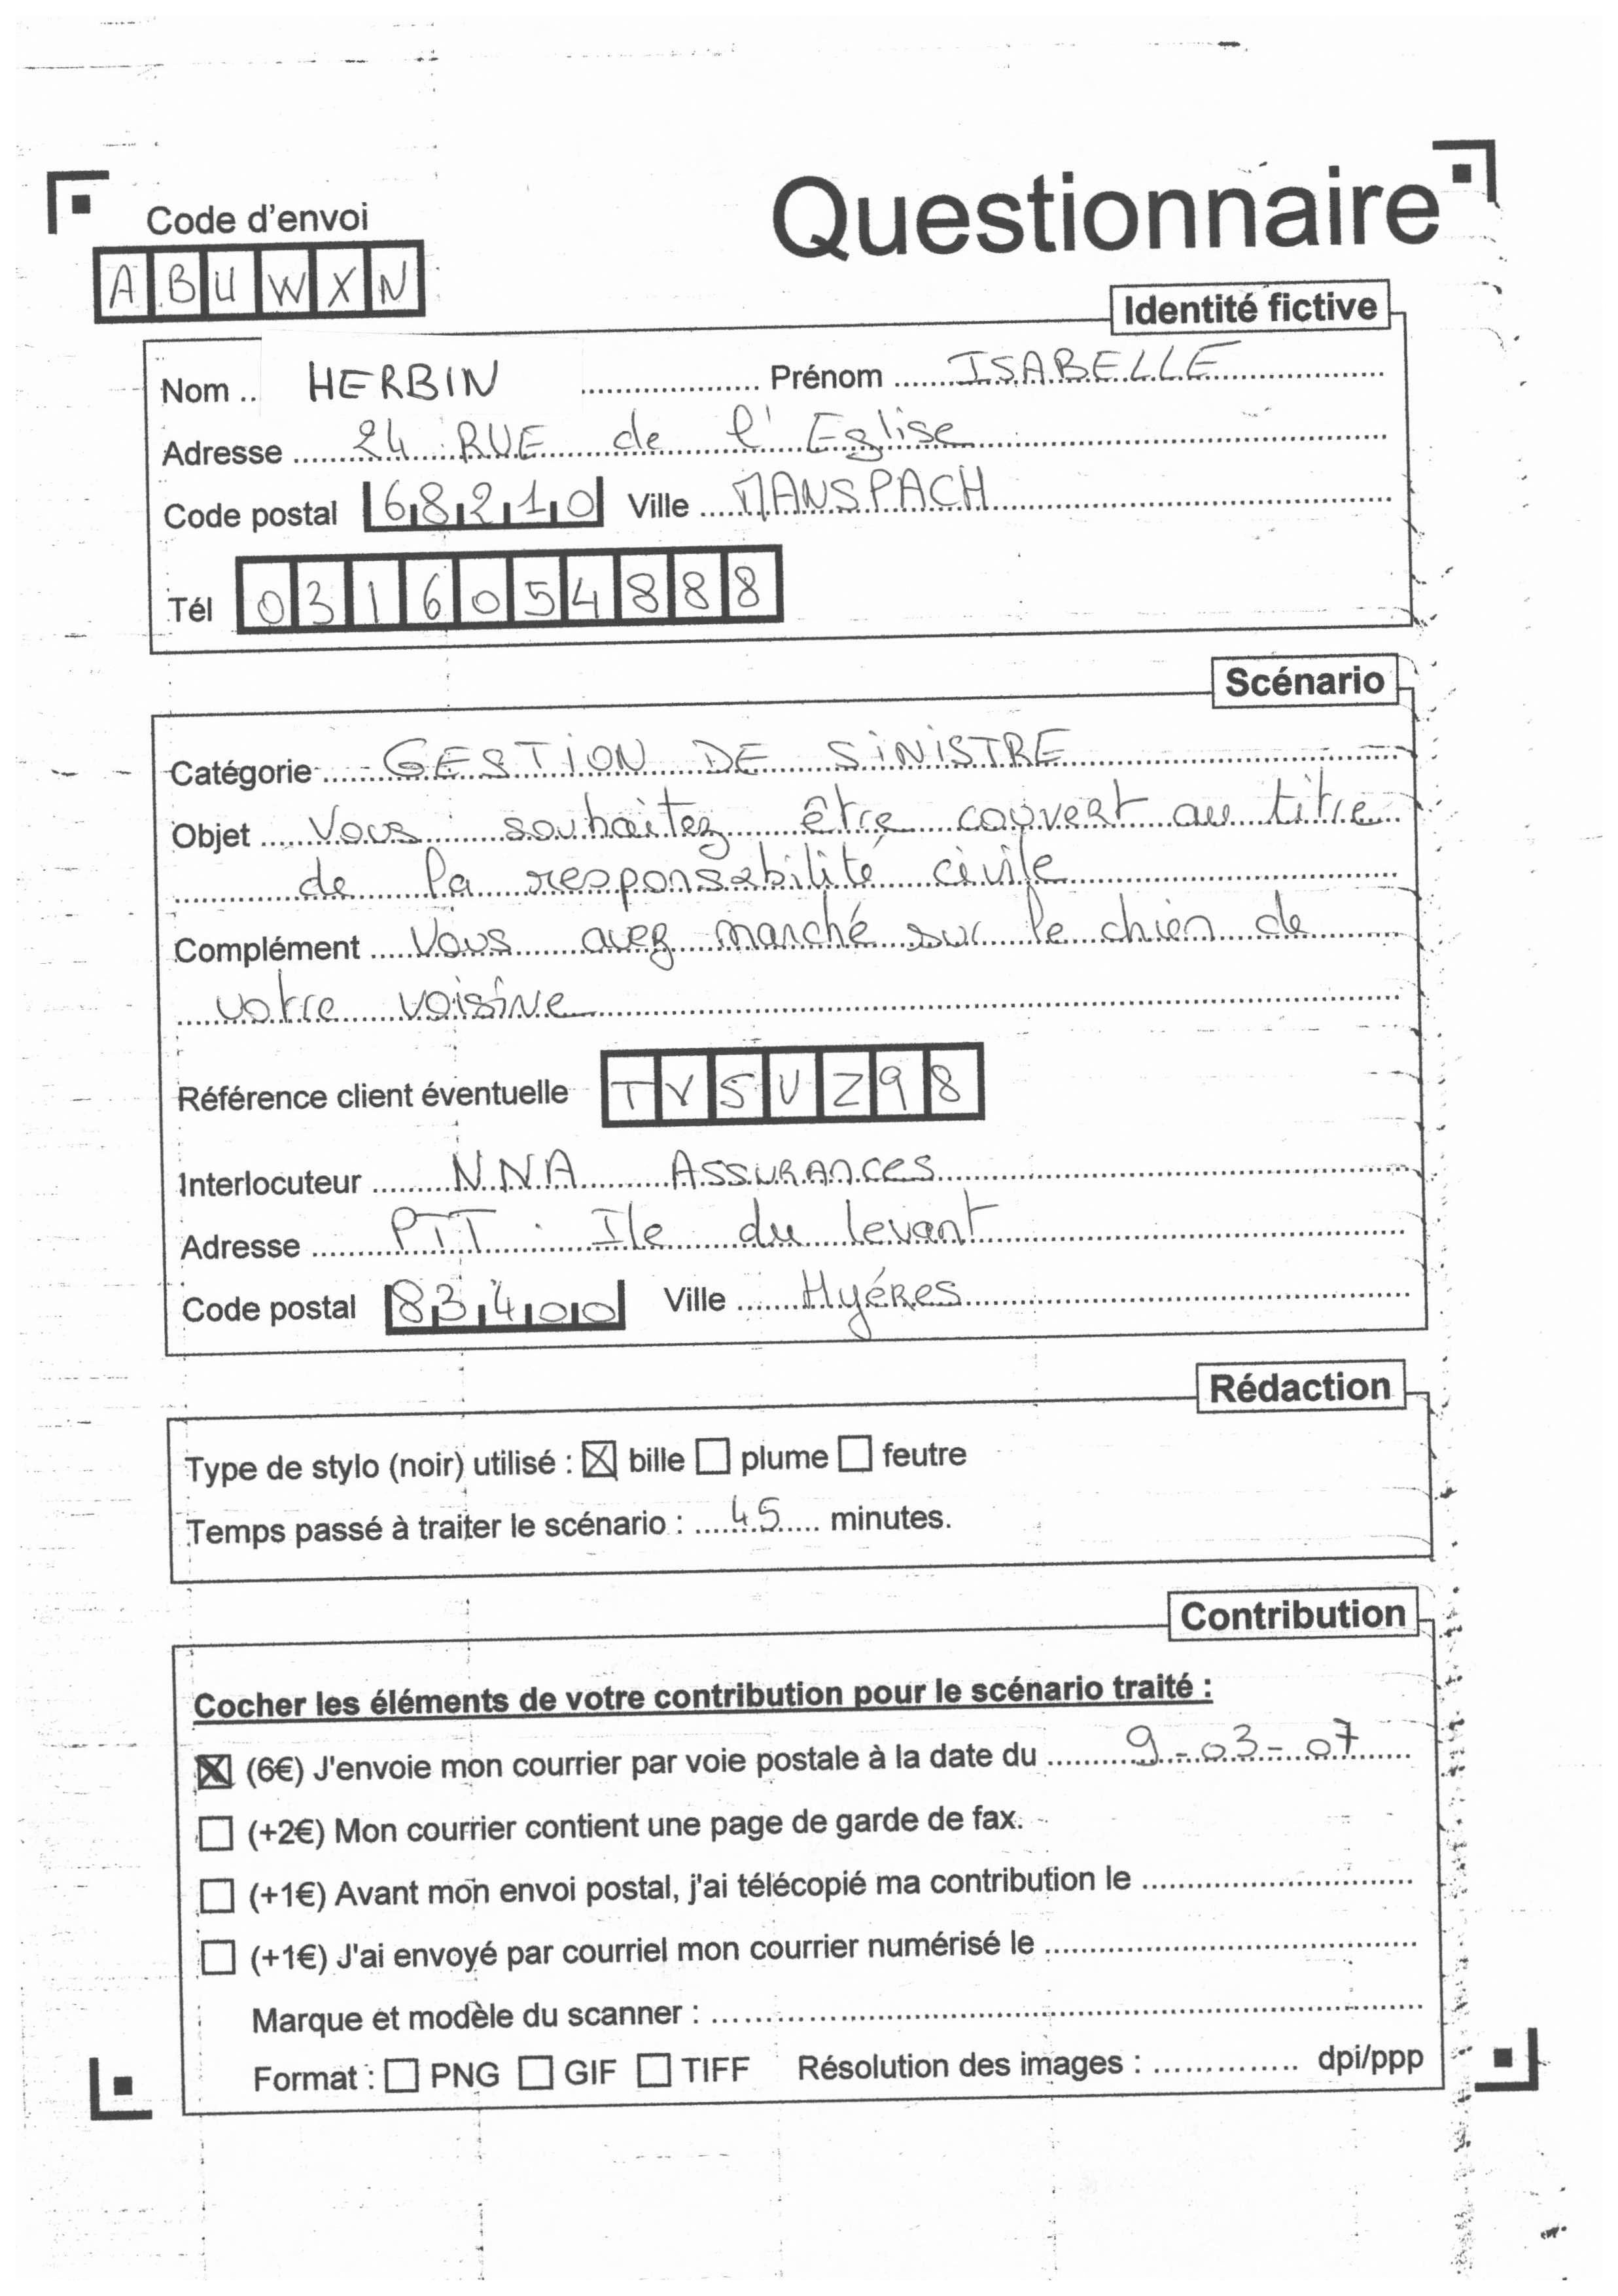 Questionnaire
Code d'envoi
A B U W X N
Identité fictive
Nom .. HERBIN Prénom ISABELLE
Adresse 24 RUE de l'Eglise
Code postal 68210 Ville MANSPACH
Tél 0316054888
Scénario
Catégorie GESTION DE SINISTRE
Objet Vous souhaitez être couvert au titre
de la responsabilité civile
Complément Vous avez marché sur le chien de
votre voisine
Référence client éventuelle TVSUZ98
Interlocuteur NNA ASSURANCES
Adresse PTT. Ile du levant
Code postal 83400 Ville Hyéres
Rédaction
Type de stylo (noir) utilisé : ☒ bille ☐ plume ☐ feutre
Temps passé à traiter le scénario : 45 minutes.
Contribution
Cocher les éléments de votre contribution pour le scénario traité :
☒ (6€) J'envoie mon courrier par voie postale à la date du 9-03-07
☐ (+2€) Mon courrier contient une page de garde de fax.
☐ (+1€) Avant mon envoi postal, j'ai télécopié ma contribution le
☐ (+1€) J'ai envoyé par courriel mon courrier numérisé le
Marque et modèle du scanner :
Format : ☐ PNG ☐ GIF ☐ TIFF Résolution des images : dpi/ppp